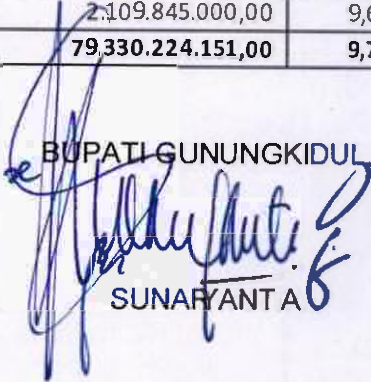 2.109.845.000,00 9,6
79.330.224.151,00 9,7
BUPATI GUNUNGKIDUL
SUNARYANTA